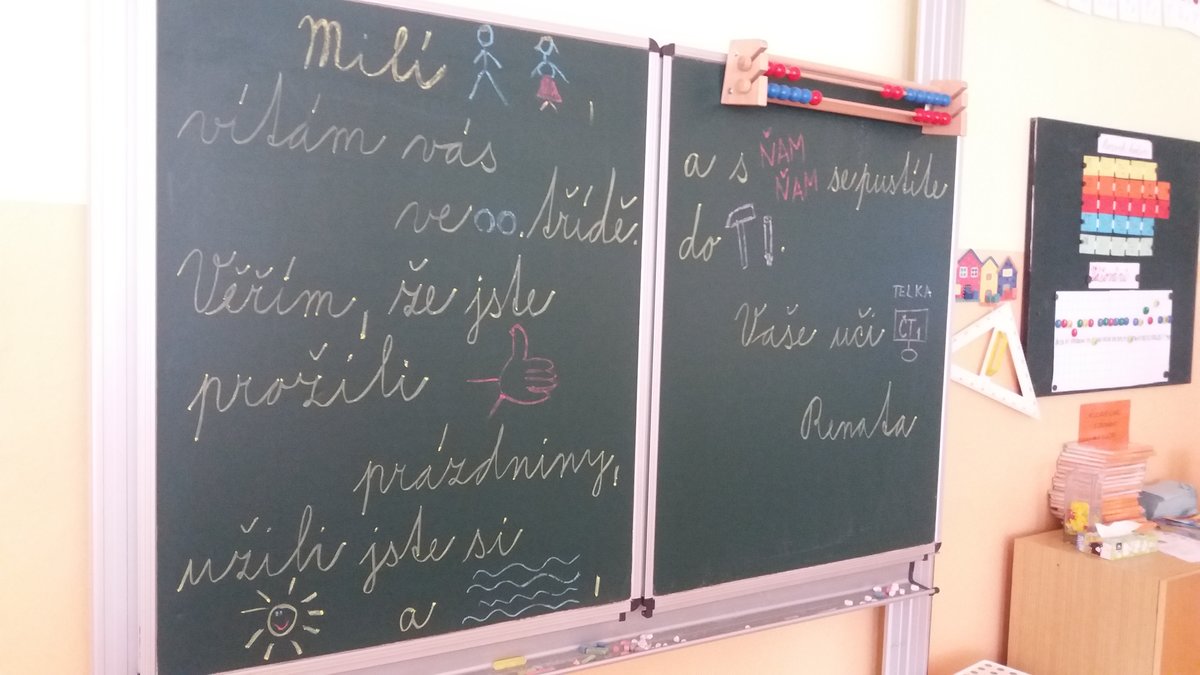 Milí ,
vítám vás
ve . třídě.
Věřím, že jste
prožili
prázdniny,
užili jste si
a ,
a s ŇAM
ŇAM se pustíte
do .
TELKA
Vaše uči ČT1
Renata